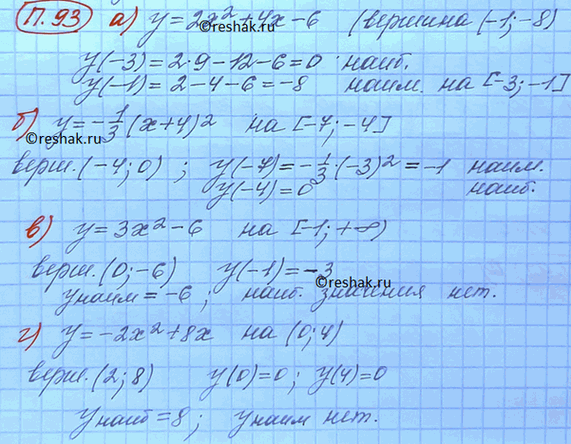 П.93 а) y = 2x² + 4x - 6 (вершина (-1; -8)
y(-3) = 2·9 - 12 - 6 = 0 наиб.
y(-1) = 2 - 4 - 6 = -8 наим. на [-3; -1]
©reshak.ru
б) y = -1/3 (x+4)² на [-7; -4]
©reshak.ru
верш. (-4; 0) ; y(-7) = -1/3 · (-3)² = -1 наим.
y(-4) = 0 наиб.
в) y = 3x² - 6 на [-1; +∞)
верш. (0; -6) y(-1) = -3
©reshak.ru
yнаим = -6 ; наиб. значения нет.
г) y = -2x² + 8x на (0; 4)
верш. (2; 8) y(0) = 0 ; y(4) = 0
yнаиб = 8 ; yнаим нет.